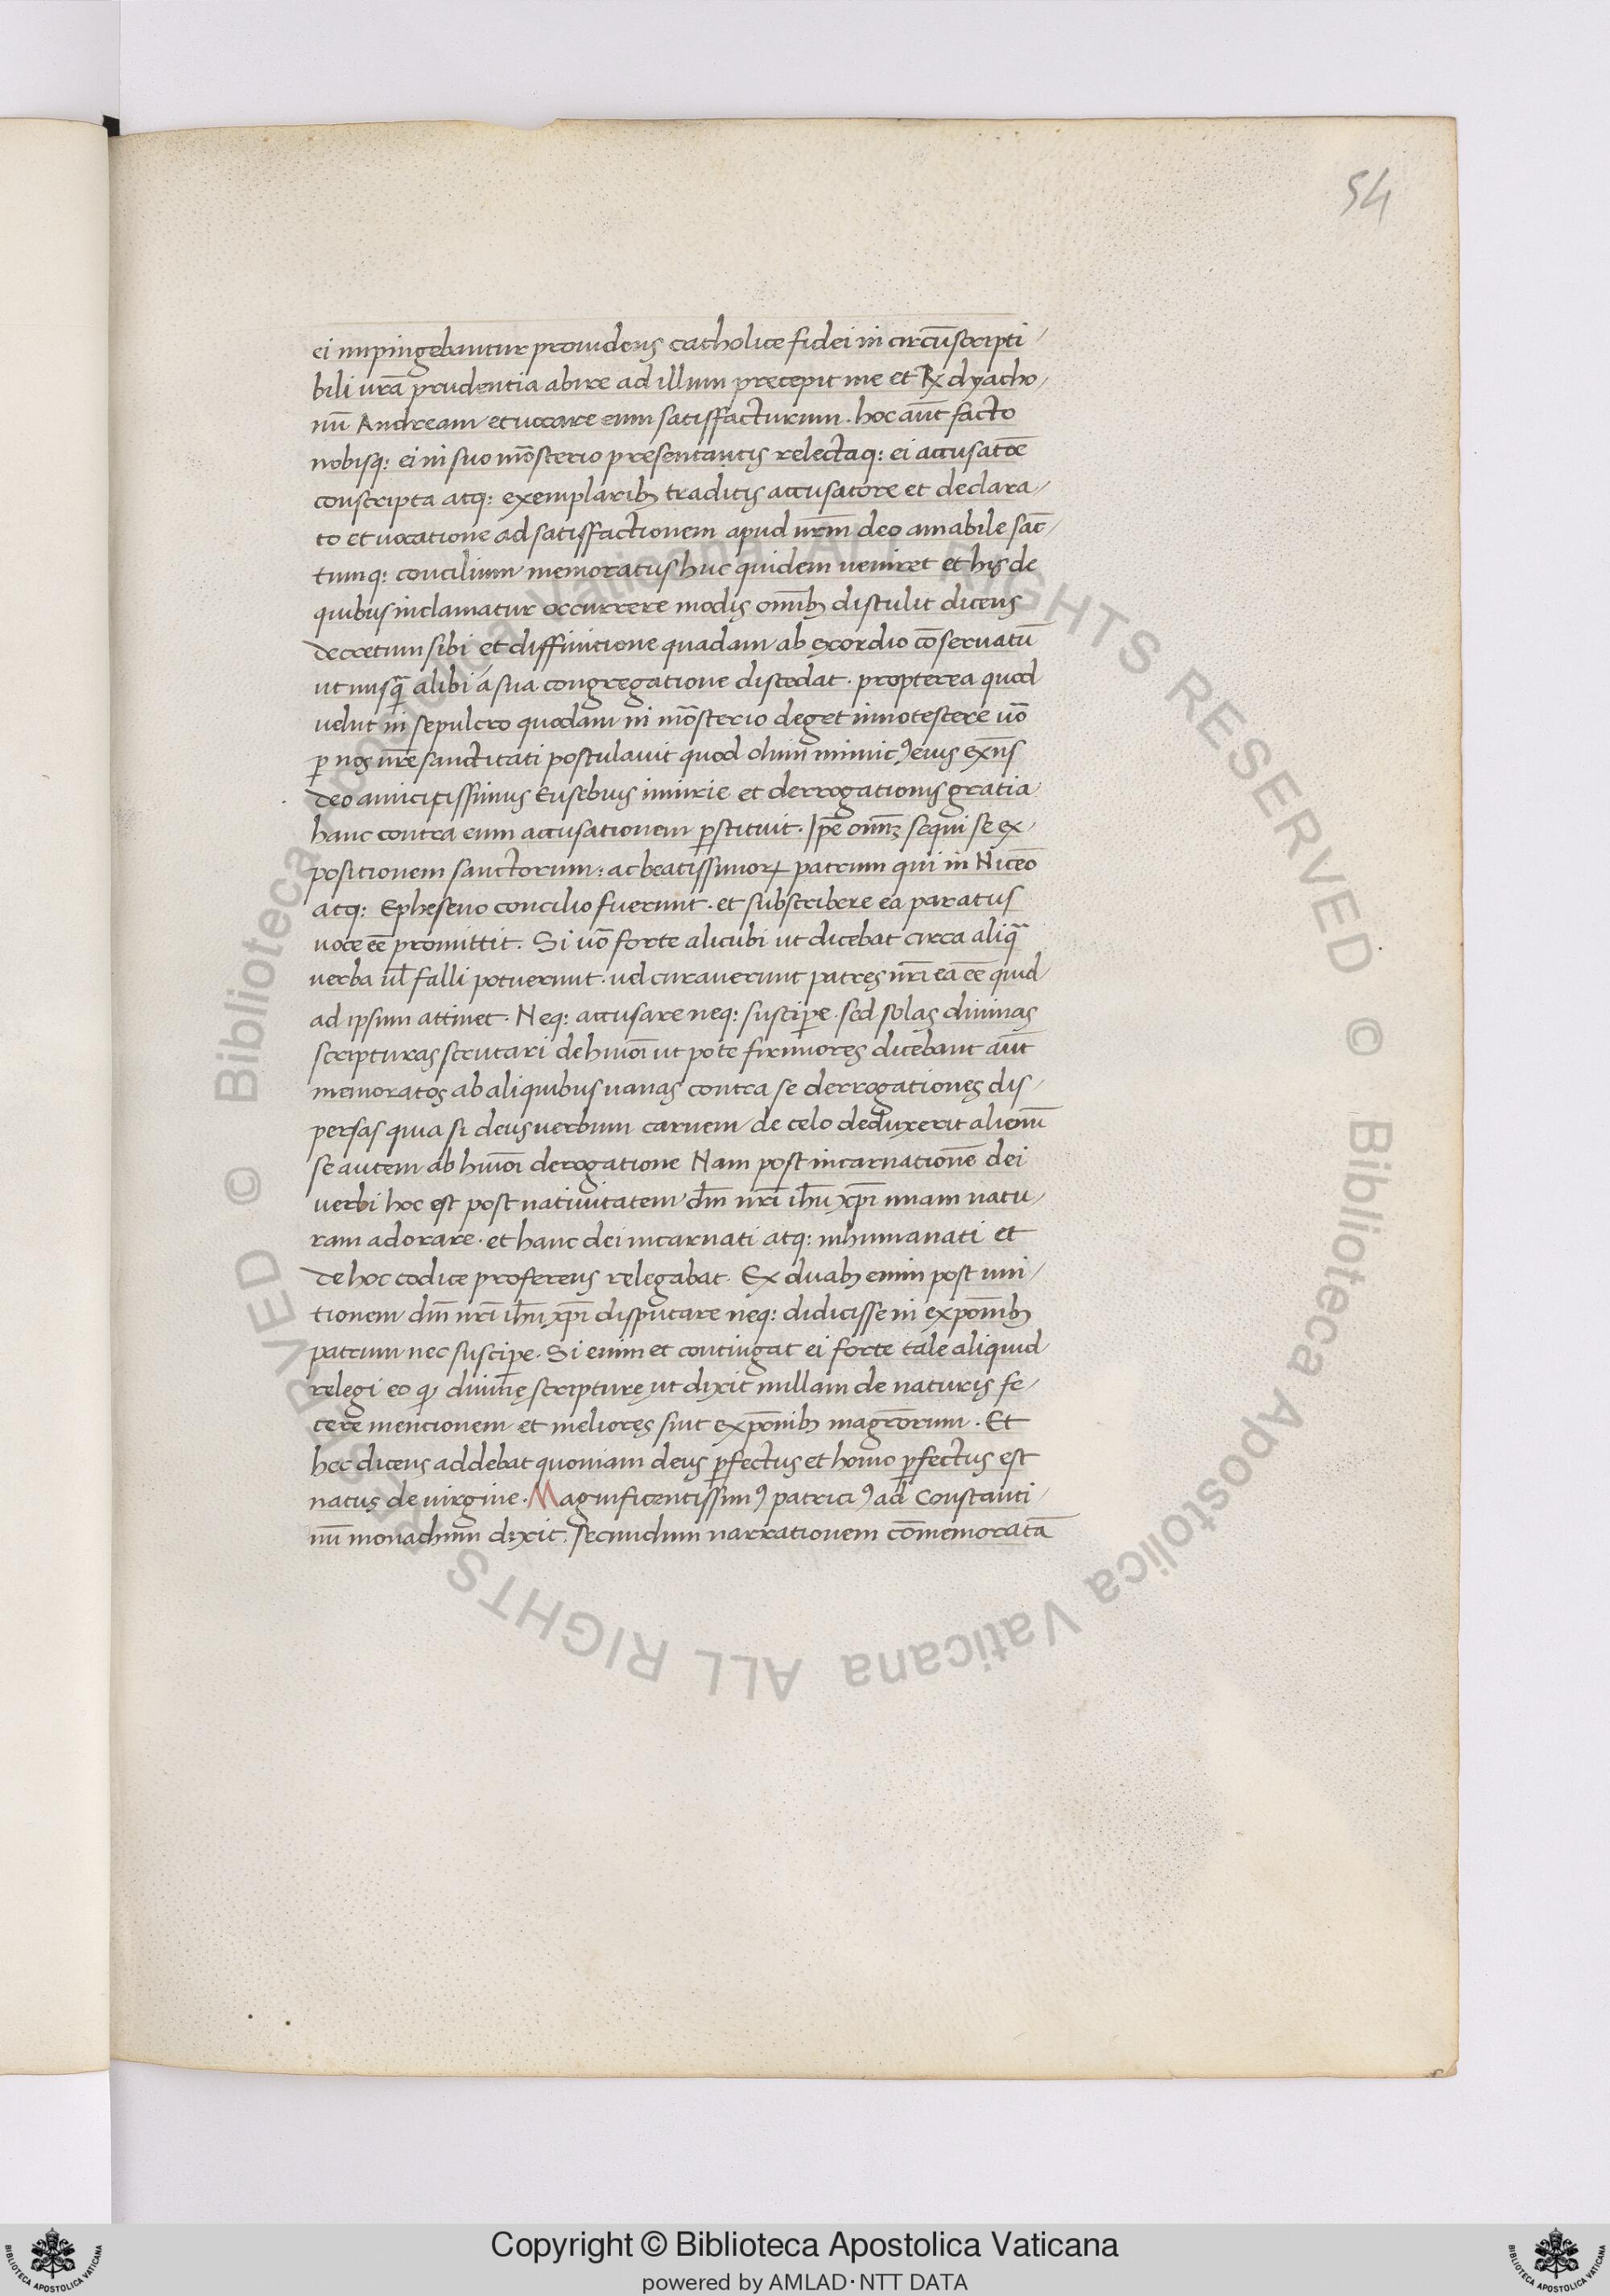 54
ei impingebantur prouidens catholice fidei in circūscripti
bili urā prudentia abire ad illum precepit me et Rx dyacho
nū Andream et uocare eum satisfacturum. hoc aūt facto
nobisq: ei in suo mōsterio presentantis relectaq: ei accusatōe
conscripta atq: exemplarib; traditis accusatore et declara
to et uocatione ad satisfactionem apud urm̄ deo amabile sāc
tumq: concilium memoratus huc quidem ueniret et his de
quibus inclamatur occurrere modis omīb; distulit dicens
decretum sibi et diffinitione quadam ab exordio cōseruatū
ut nusq̄ alibi a sua congregatione discedat. propterea quod
uelut in sepulcro quodam in mōsterio deget innotescere uō
p̱ nos ur̄e sanctitati postulauit quod olim inimicꝰ eius exn̄s
deo amicitissimus Eusebius iniurie et derrogationis gratia
hanc contra eum accusationem p̱stituit. Ip̄e omn̄z sequi se ex
positionem sanctorum: ac beatissimoꝝ patrum qui in Nicēo
atq: Epheseno concilio fuerunt. et subscribere ea paratus
uoce eē promittit. Si uō forte alicubi ut dicebat circa aliq̄
verba ul̄ falli potuerunt. uel curauerunt patres nr̄i ea eē quid
ad ipsum attinet. Neq: accusare neq: suscip̱e. sed solas diuinas
scripturas scrutari de hm̄oi ut pote firmiores dicebant aūt
memoratos ab aliquibus uanas contra se derrogationes dis
persas quia si deus uerbum carnem de celo deduxerit alienū
se autem ab hm̄oi derogatione Nam post incarnationē dei
uerbi hoc est post natiuitatem dn̄i nr̄i ih̄u xp̄i unam natu
ram adorare. et hanc dei incarnati atq: inhumanati et
de hoc codice proferens relegabat. Ex duab; enim post uni
tionem dn̄i nr̄i ih̄u xp̄i disputare neq: didicisse in expōnib;
patrum nec suscip̱e. Si enim et contingat ei forte tale aliquid
relegi eo qꝫ diuinę scripturę ut dixit nullam de naturis fe
cere mentionem et meliores sint expōnib; magr̄orum. Et
hec dicens addebat quoniam deus p̱fectus et homo p̱fectus est
natus de uirgine. Magnificentissimꝰ patriciꝰ ad Constanti
nū monachum dixit. secundum narrationem cōmemoratā
© Biblioteca Apostolica Vaticana ALL RIGHTS RESERVED © Biblioteca Apostolica Vaticana ALL RIGHTS RESERVED
Copyright © Biblioteca Apostolica Vaticana
powered by AMLAD·NTT DATA
BIBLIOTECA APOSTOLICA VATICANA
BIBLIOTECA APOSTOLICA VATICANA